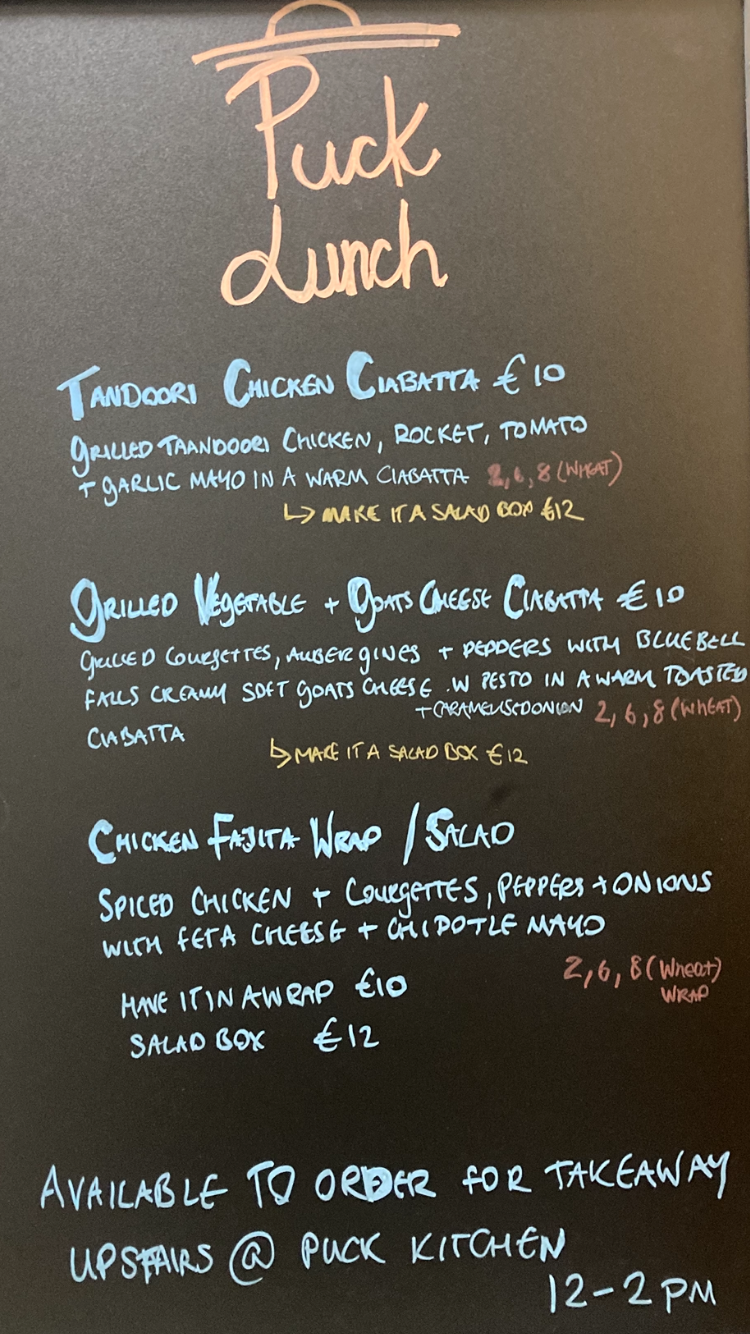 Puck
Lunch
TANDOORI CHICKEN CIABATTA €10
GRILLED TAANDOORI CHICKEN, ROCKET, TOMATO
+ GARLIC MAYO IN A WARM CIABATTA 2, 6, 8 (WHEAT)
↳ MAKE IT A SALAD BOX €12
GRILLED VEGETABLE + GOATS CHEESE CIABATTA €10
GRILLED COURGETTES, AUBERGINES + PEPPERS WITH BLUEBELL
FALLS CREAMY SOFT GOATS CHEESE .W PESTO IN A WARM TOASTED
+ CARAMELISED ONION 2, 6, 8 (WHEAT)
CIABATTA
↳ MAKE IT A SALAD BOX €12
CHICKEN FAJITA WRAP / SALAD
SPICED CHICKEN + COURGETTES, PEPPERS + ONIONS
WITH FETA CHEESE + CHIPOTLE MAYO
2, 6, 8 (Wheat)
WRAP
HAVE IT IN A WRAP €10
SALAD BOX €12
AVAILABLE TO ORDER FOR TAKEAWAY
UPSTAIRS @ PUCK KITCHEN
12-2 PM